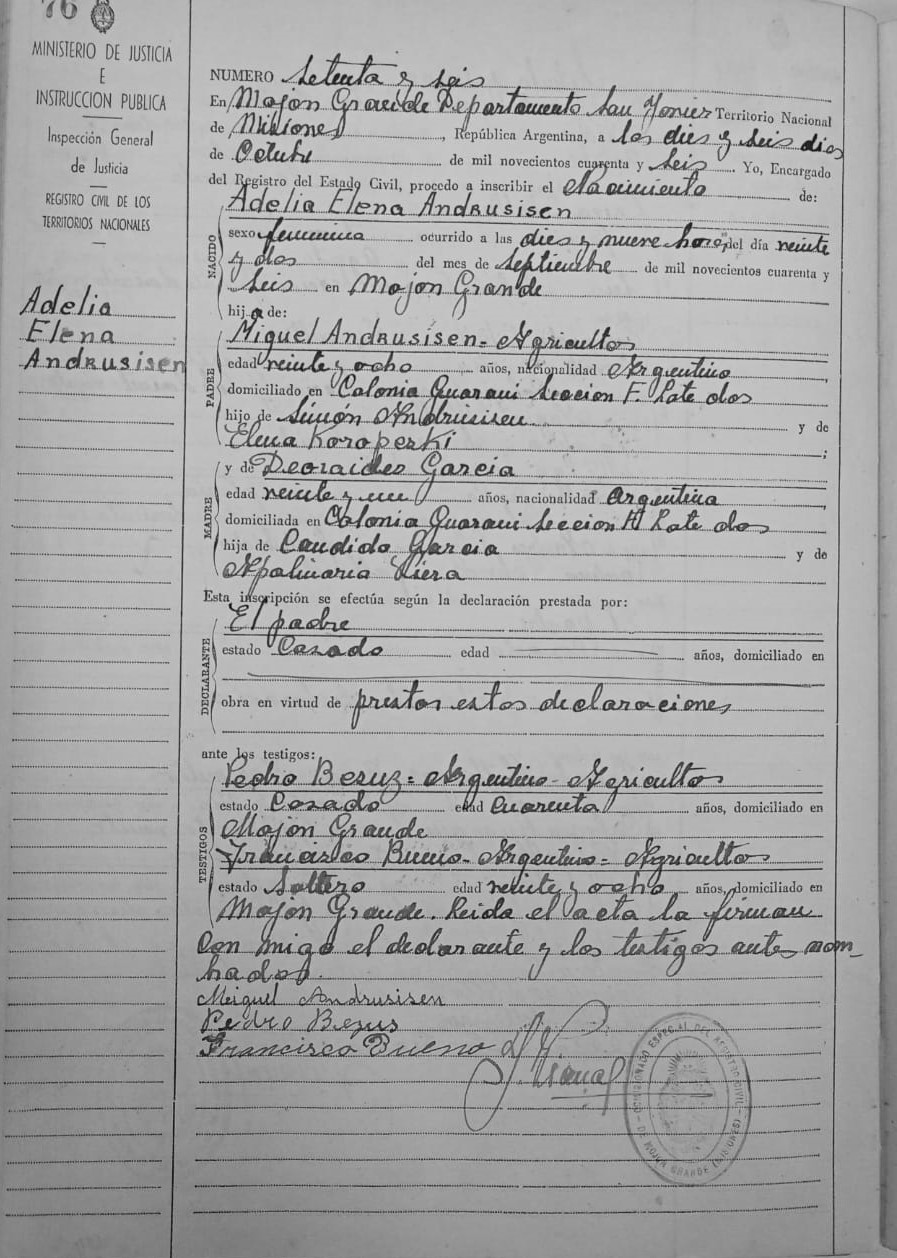 76
MINISTERIO DE JUSTICIA
E
INSTRUCCION PUBLICA
Inspección General
de Justicia
REGISTRO CIVIL DE LOS
TERRITORIOS NACIONALES
Adelia
Elena
Andrusisen
NUMERO Setenta y seis
En Mojon Grande Departamento San Javier Territorio Nacional
de Misiones, República Argentina, a los dies y seis dias
de Octubre de mil novecientos cuarenta y seis Yo, Encargado
del Registro del Estado Civil, procedo a inscribir el Nacimiento de:
Adelia Elena Andrusisen
NACIDO
sexo femenina ocurrido a las dies y nueve horas, del día veinte
y dos del mes de septiembre de mil novecientos cuarenta y
seis en Mojon Grande
hija de:
Miguel Andrusisen = Agricultor
PADRE
edad veinte y ocho años, nacionalidad Argentino,
domiciliado en Colonia Guarani Seccion F. Lote dos
hijo de Simón Andrusisen y de
Elena Koroperki;
y de Deoraides Garcia
MADRE
edad veinte y un años, nacionalidad argentina
domiciliada en Colonia Guarani Seccion Lote dos
hija de Candido Garcia y de
Apolinaria
Esta inscripción se efectúa según la declaración prestada por:
El padre
DECLARANTE
estado Casado edad años, domiciliado en
obra en virtud de prestar estas declaraciones
ante los testigos:
Pedro Bezuz = Argentino - Agricultor
TESTIGOS
estado Casado edad cuarenta años, domiciliado en
Mojon Grande
Francisco Bueno - Argentino = Agricultor
estado Soltero edad veinte y ocho años, domiciliado en
Mojon Grande. Leida el acta la firman
con migo el declarante y los testigos antes nom_
brados.
Miguel Andrusisen
Pedro Bezus
Francisco Bueno
COMISIONADO ESPECIAL DEL REGISTRO CIVIL
DE MOJON GRANDE